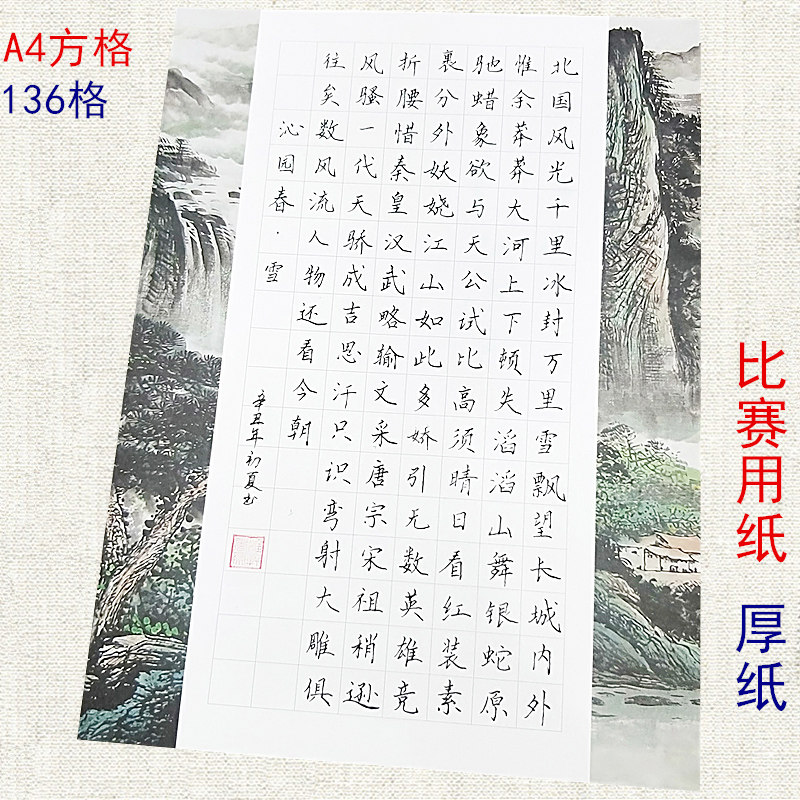 A4方格
136格
北国风光千里冰封万里雪飘望长城内外
惟余莽莽大河上下顿失滔滔山舞银蛇原
驰蜡象欲与天公试比高须晴日看红装素
裹分外妖娆江山如此多娇引无数英雄竞
折腰惜秦皇汉武略输文采唐宗宋祖稍逊
风骚一代天骄成吉思汗只识弯射大雕俱
往矣数风流人物还看今朝
沁园春·雪
辛丑年初夏书
比赛用纸 厚纸